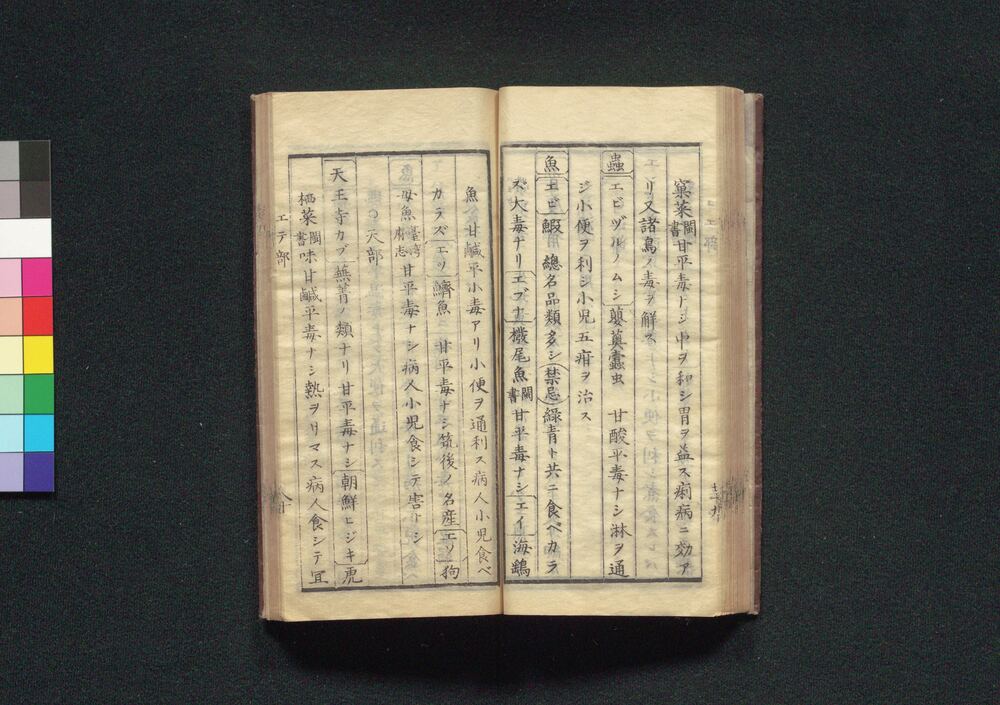 菓菜閩書甘平毒ナシ中ヲ和シ胃ヲ益ス痢病ニ効ア
リ又諸鳥ノ毒ヲ解ス
蟲 エビヅルノムシ 蘡薁蠹虫 甘酸平毒ナシ淋ヲ通
ジ小便ヲ利シ小児五疳ヲ治ス
魚 エビ 鰕 總名品類多シ 禁忌 緑青ト共ニ食ベカラ
ズ大毒ナリ エブナ 樴尾魚閩書甘平毒ナシ エイ 海鷂
魚 甘鹹平小毒アリ小便ヲ通利ス病人小児食ベ
カラズ エツ 鱭魚 甘平毒ナシ筑後ノ名産 エソ 狗
母魚臺湾府志甘平毒ナシ病人小児食シテ害ナシ
○天部
天王寺カブ 蕪菁ノ類ナリ甘平毒ナシ 朝鮮ヒジキ 鹿
栖菜閩書味甘鹹平毒ナシ熱ヲサマス病人食シテ宜
エテ部